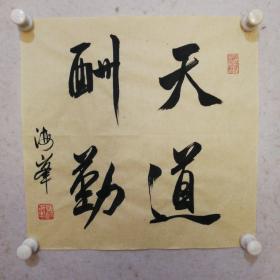 天道
酬勤
海峰